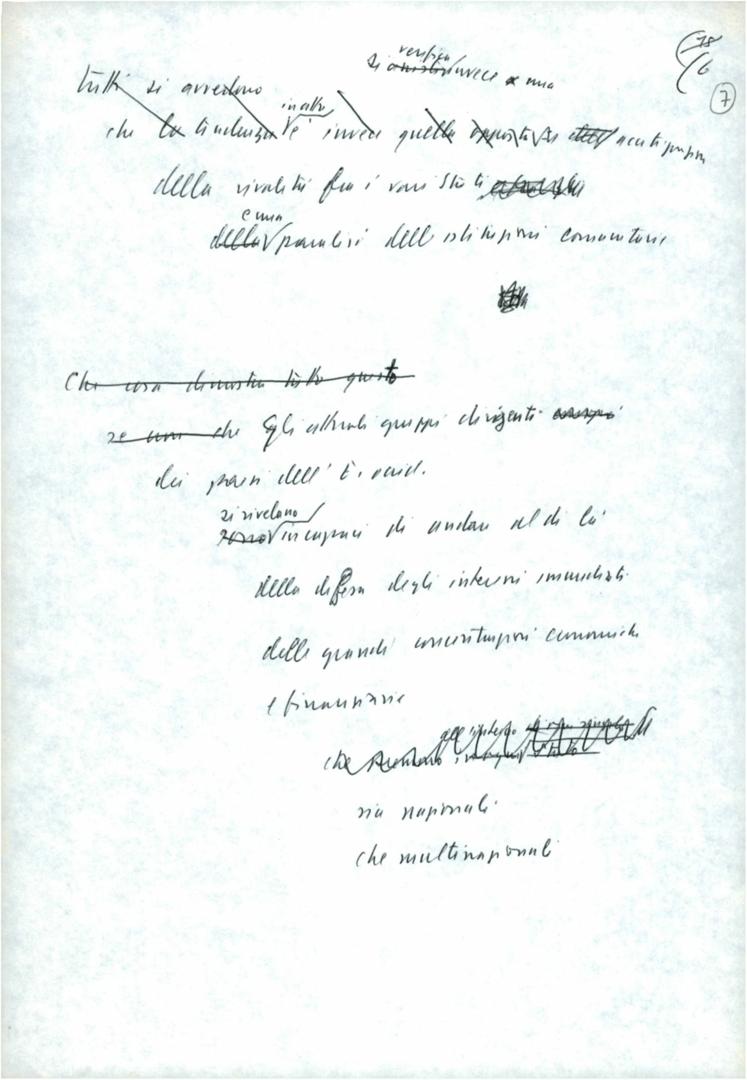 18/6
7
verifica
si assiste invece a una
tutti si avvedono
in atto
che la tendenza è invece quella opposta acutizzazione
della rivalità fra i vari Stati
e una
della paralisi delle istituzioni comunitarie
Che cosa dimostra tutto questo
se non che gli attuali gruppi dirigenti
dei paesi dell'E. occid.
si rivelano
sono incapaci di andare al di là
della difesa degli interessi immediati
delle grandi concentrazioni economiche
e finanziarie
all'interno di ogni singolo
che premono
sia nazionali
che multinazionali